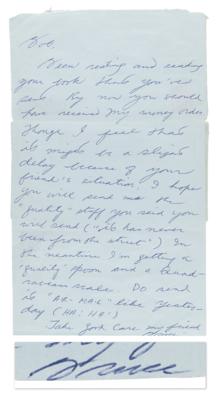 Bob,
Been resting and reading
your book that you've
sent. By now you should
have received my money order
though I feel that
its might be a slight
delay because of your
friend's situation. I hope
you will send me the
"quality" stuff you said you
will send ("its has never
been from the street") In
the meantime I'm getting a
"quality" spoon and a
scale. Do send
it "AIR-MAIL" like Yester-
day (HA: HA!)
Take Care my friend
Bruce
Bruce